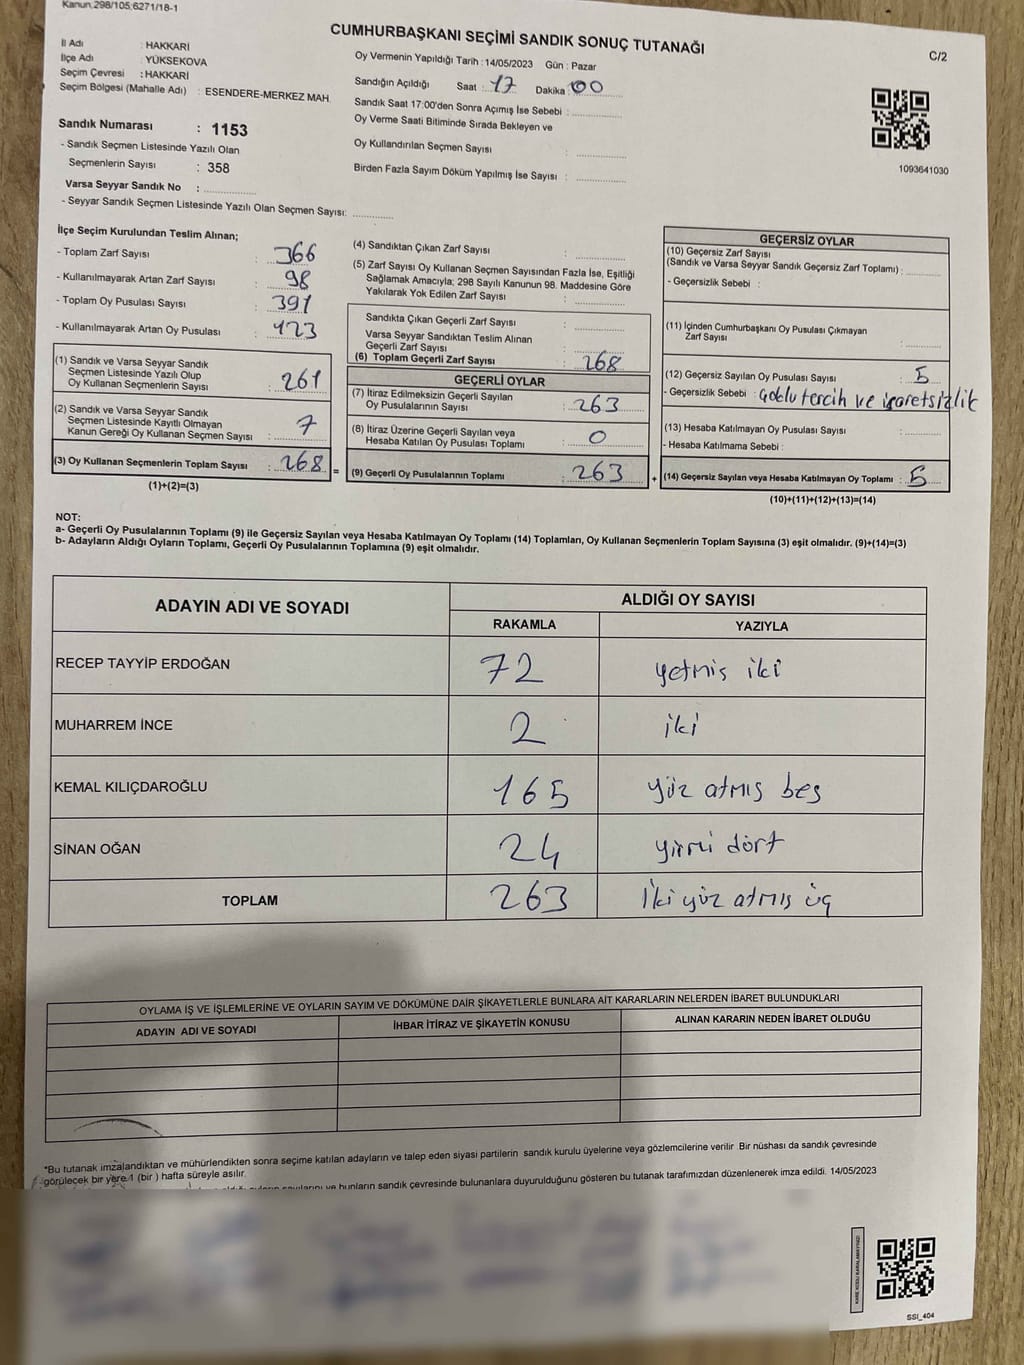 Kanun,298/105;6271/18-1
CUMHURBAŞKANI SEÇİMİ SANDIK SONUÇ TUTANAĞI
C/2
İl Adı : HAKKARİ
İlçe Adı : YÜKSEKOVA
Seçim Çevresi : HAKKARİ
Seçim Bölgesi (Mahalle Adı) : ESENDERE-MERKEZ MAH.
Sandık Numarası : 1153
- Sandık Seçmen Listesinde Yazılı Olan
Seçmenlerin Sayısı : 358
Varsa Seyyar Sandık No :
- Seyyar Sandık Seçmen Listesinde Yazılı Olan Seçmen Sayısı:
Oy Vermenin Yapıldığı Tarih : 14/05/2023 Gün : Pazar
Sandığın Açıldığı Saat : 17 Dakika : 00
Sandık Saat 17:00'den Sonra Açımış İse Sebebi :
Oy Verme Saati Bitiminde Sırada Bekleyen ve
Oy Kullandırılan Seçmen Sayısı :
Birden Fazla Sayım Döküm Yapılmış İse Sayısı :
1093641030
İlçe Seçim Kurulundan Teslim Alınan;
- Toplam Zarf Sayısı : 366
- Kullanılmayarak Artan Zarf Sayısı : 98
- Toplam Oy Pusulası Sayısı : 391
- Kullanılmayarak Artan Oy Pusulası : 123
(1) Sandık ve Varsa Seyyar Sandık
Seçmen Listesinde Yazılı Olup
Oy Kullanan Seçmenlerin Sayısı : 261
(2) Sandık ve Varsa Seyyar Sandık
Seçmen Listesinde Kayıtlı Olmayan
Kanun Gereği Oy Kullanan Seçmen Sayısı : 7
(3) Oy Kullanan Seçmenlerin Toplam Sayısı : 268 =
(1)+(2)=(3)
(4) Sandıktan Çıkan Zarf Sayısı :
(5) Zarf Sayısı Oy Kullanan Seçmen Sayısından Fazla İse, Eşitliği
Sağlamak Amacıyla; 298 Sayılı Kanunun 98. Maddesine Göre
Yakılarak Yok Edilen Zarf Sayısı :
Sandıkta Çıkan Geçerli Zarf Sayısı :
Varsa Seyyar Sandıktan Teslim Alınan
Geçerli Zarf Sayısı :
(6) Toplam Geçerli Zarf Sayısı : 268
GEÇERLİ OYLAR
(7) İtiraz Edilmeksizin Geçerli Sayılan
Oy Pusulalarının Sayısı : 263
(8) İtiraz Üzerine Geçerli Sayılan veya
Hesaba Katılan Oy Pusulası Toplamı : 0
(9) Geçerli Oy Pusulalarının Toplamı : 263 +
GEÇERSİZ OYLAR
(10) Geçersiz Zarf Sayısı
(Sandık ve Varsa Seyyar Sandık Geçersiz Zarf Toplamı) :
- Geçersizlik Sebebi :
(11) İçinden Cumhurbaşkanı Oy Pusulası Çıkmayan
Zarf Sayısı :
(12) Geçersiz Sayılan Oy Pusulası Sayısı : 5
- Geçersizlik Sebebi : Çoklu tercih ve işaretsizlik
(13) Hesaba Katılmayan Oy Pusulası Sayısı :
- Hesaba Katılmama Sebebi :
(14) Geçersiz Sayılan veya Hesaba Katılmayan Oy Toplamı : 5
(10)+(11)+(12)+(13)=(14)
NOT:
a- Geçerli Oy Pusulalarının Toplamı (9) ile Geçersiz Sayılan veya Hesaba Katılmayan Oy Toplamı (14) Toplamları, Oy Kullanan Seçmenlerin Toplam Sayısına (3) eşit olmalıdır. (9)+(14)=(3)
b- Adayların Aldığı Oyların Toplamı, Geçerli Oy Pusulalarının Toplamına (9) eşit olmalıdır.
ADAYIN ADI VE SOYADI
ALDIĞI OY SAYISI
RAKAMLA YAZIYLA
RECEP TAYYİP ERDOĞAN 72 yetmiş iki
MUHARREM İNCE 2 iki
KEMAL KILIÇDAROĞLU 165 yüz atmış beş
SİNAN OĞAN 24 yirmi dört
TOPLAM 263 İki yüz atmış üç
OYLAMA İŞ VE İŞLEMLERİNE VE OYLARIN SAYIM VE DÖKÜMÜNE DAİR ŞİKAYETLERLE BUNLARA AİT KARARLARIN NELERDEN İBARET BULUNDUKLARI
ADAYIN ADI VE SOYADI İHBAR İTİRAZ VE ŞİKAYETİN KONUSU ALINAN KARARIN NEDEN İBARET OLDUĞU
*Bu tutanak imzalandıktan ve mühürlendikten sonra seçime katılan adayların ve talep eden siyasi partilerin sandık kurulu üyelerine veya gözlemcilerine verilir. Bir nüshası da sandık çevresinde
görülecek bir yere 1 (bir ) hafta süreyle asılır.
sayılarını ve bunların sandık çevresinde bulunanlara duyurulduğunu gösteren bu tutanak tarafımızdan düzenlenerek imza edildi. 14/05/2023
KARE KODU KARALAMAYINIZ!
SSI_404